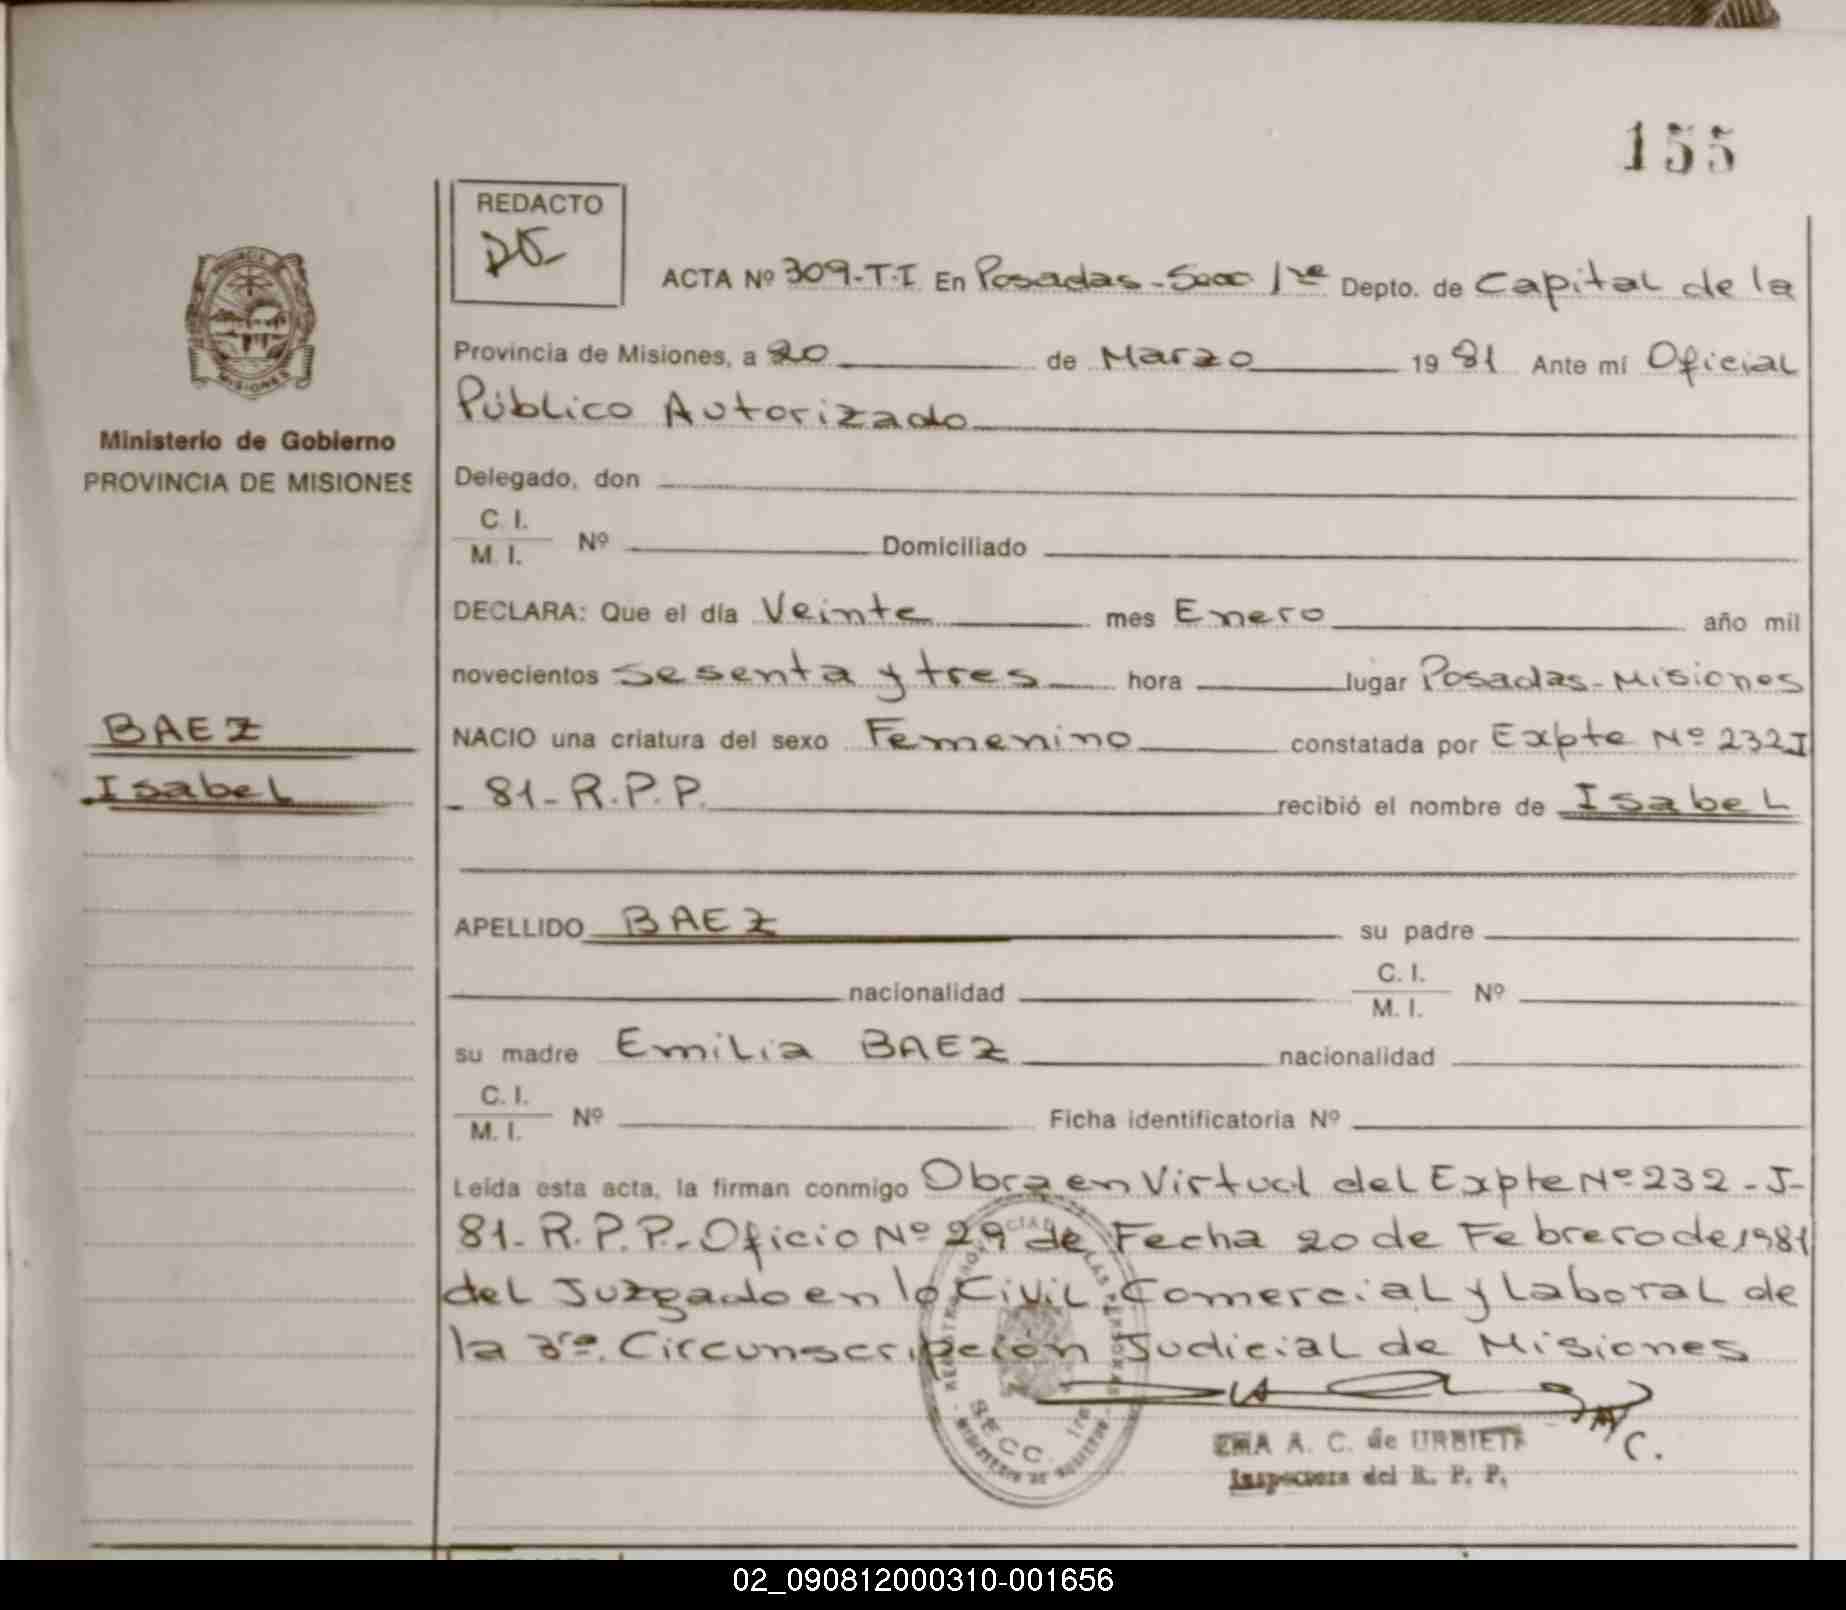 155
REDACTO
ACTA Nº 309-T-I En Posadas - Secc 1re Depto. de Capital de la
Provincia de Misiones, a 20 de Marzo 1981 Ante mí Oficial
Público Autorizado
MISIONES
Ministerio de Gobierno
PROVINCIA DE MISIONES
Delegado, don
C. I.
M. I. Nº Domiciliado
DECLARA: Que el día Veinte mes Enero año mil
novecientos Sesenta y tres hora lugar Posadas - Misiones
BAEZ
Isabel
NACIO una criatura del sexo Femenino constatada por Expte Nº 232 J
- 81 - R.P.P. recibió el nombre de Isabel
APELLIDO BAEZ su padre
nacionalidad C. I.
M. I. Nº
su madre Emilia BAEZ nacionalidad
C. I.
M. I. Nº Ficha identificatoria Nº
Leída esta acta, la firman conmigo Obra en Virtud del Expte Nº 232 - J -
81 - R.P.P. - Oficio Nº 29 de Fecha 20 de Febrero de 1981
del Juzgado en lo Civil Comercial y Laboral de
la 3ra. Circunscripcion Judicial de Misiones
REGISTRO PROVINCIAL DE LAS PERSONAS
SECC. 1ra
MINISTERIO DE GOBIERNO
A. C. de URBIETA
Inspectora del R. P. P.
02_090812000310-001656